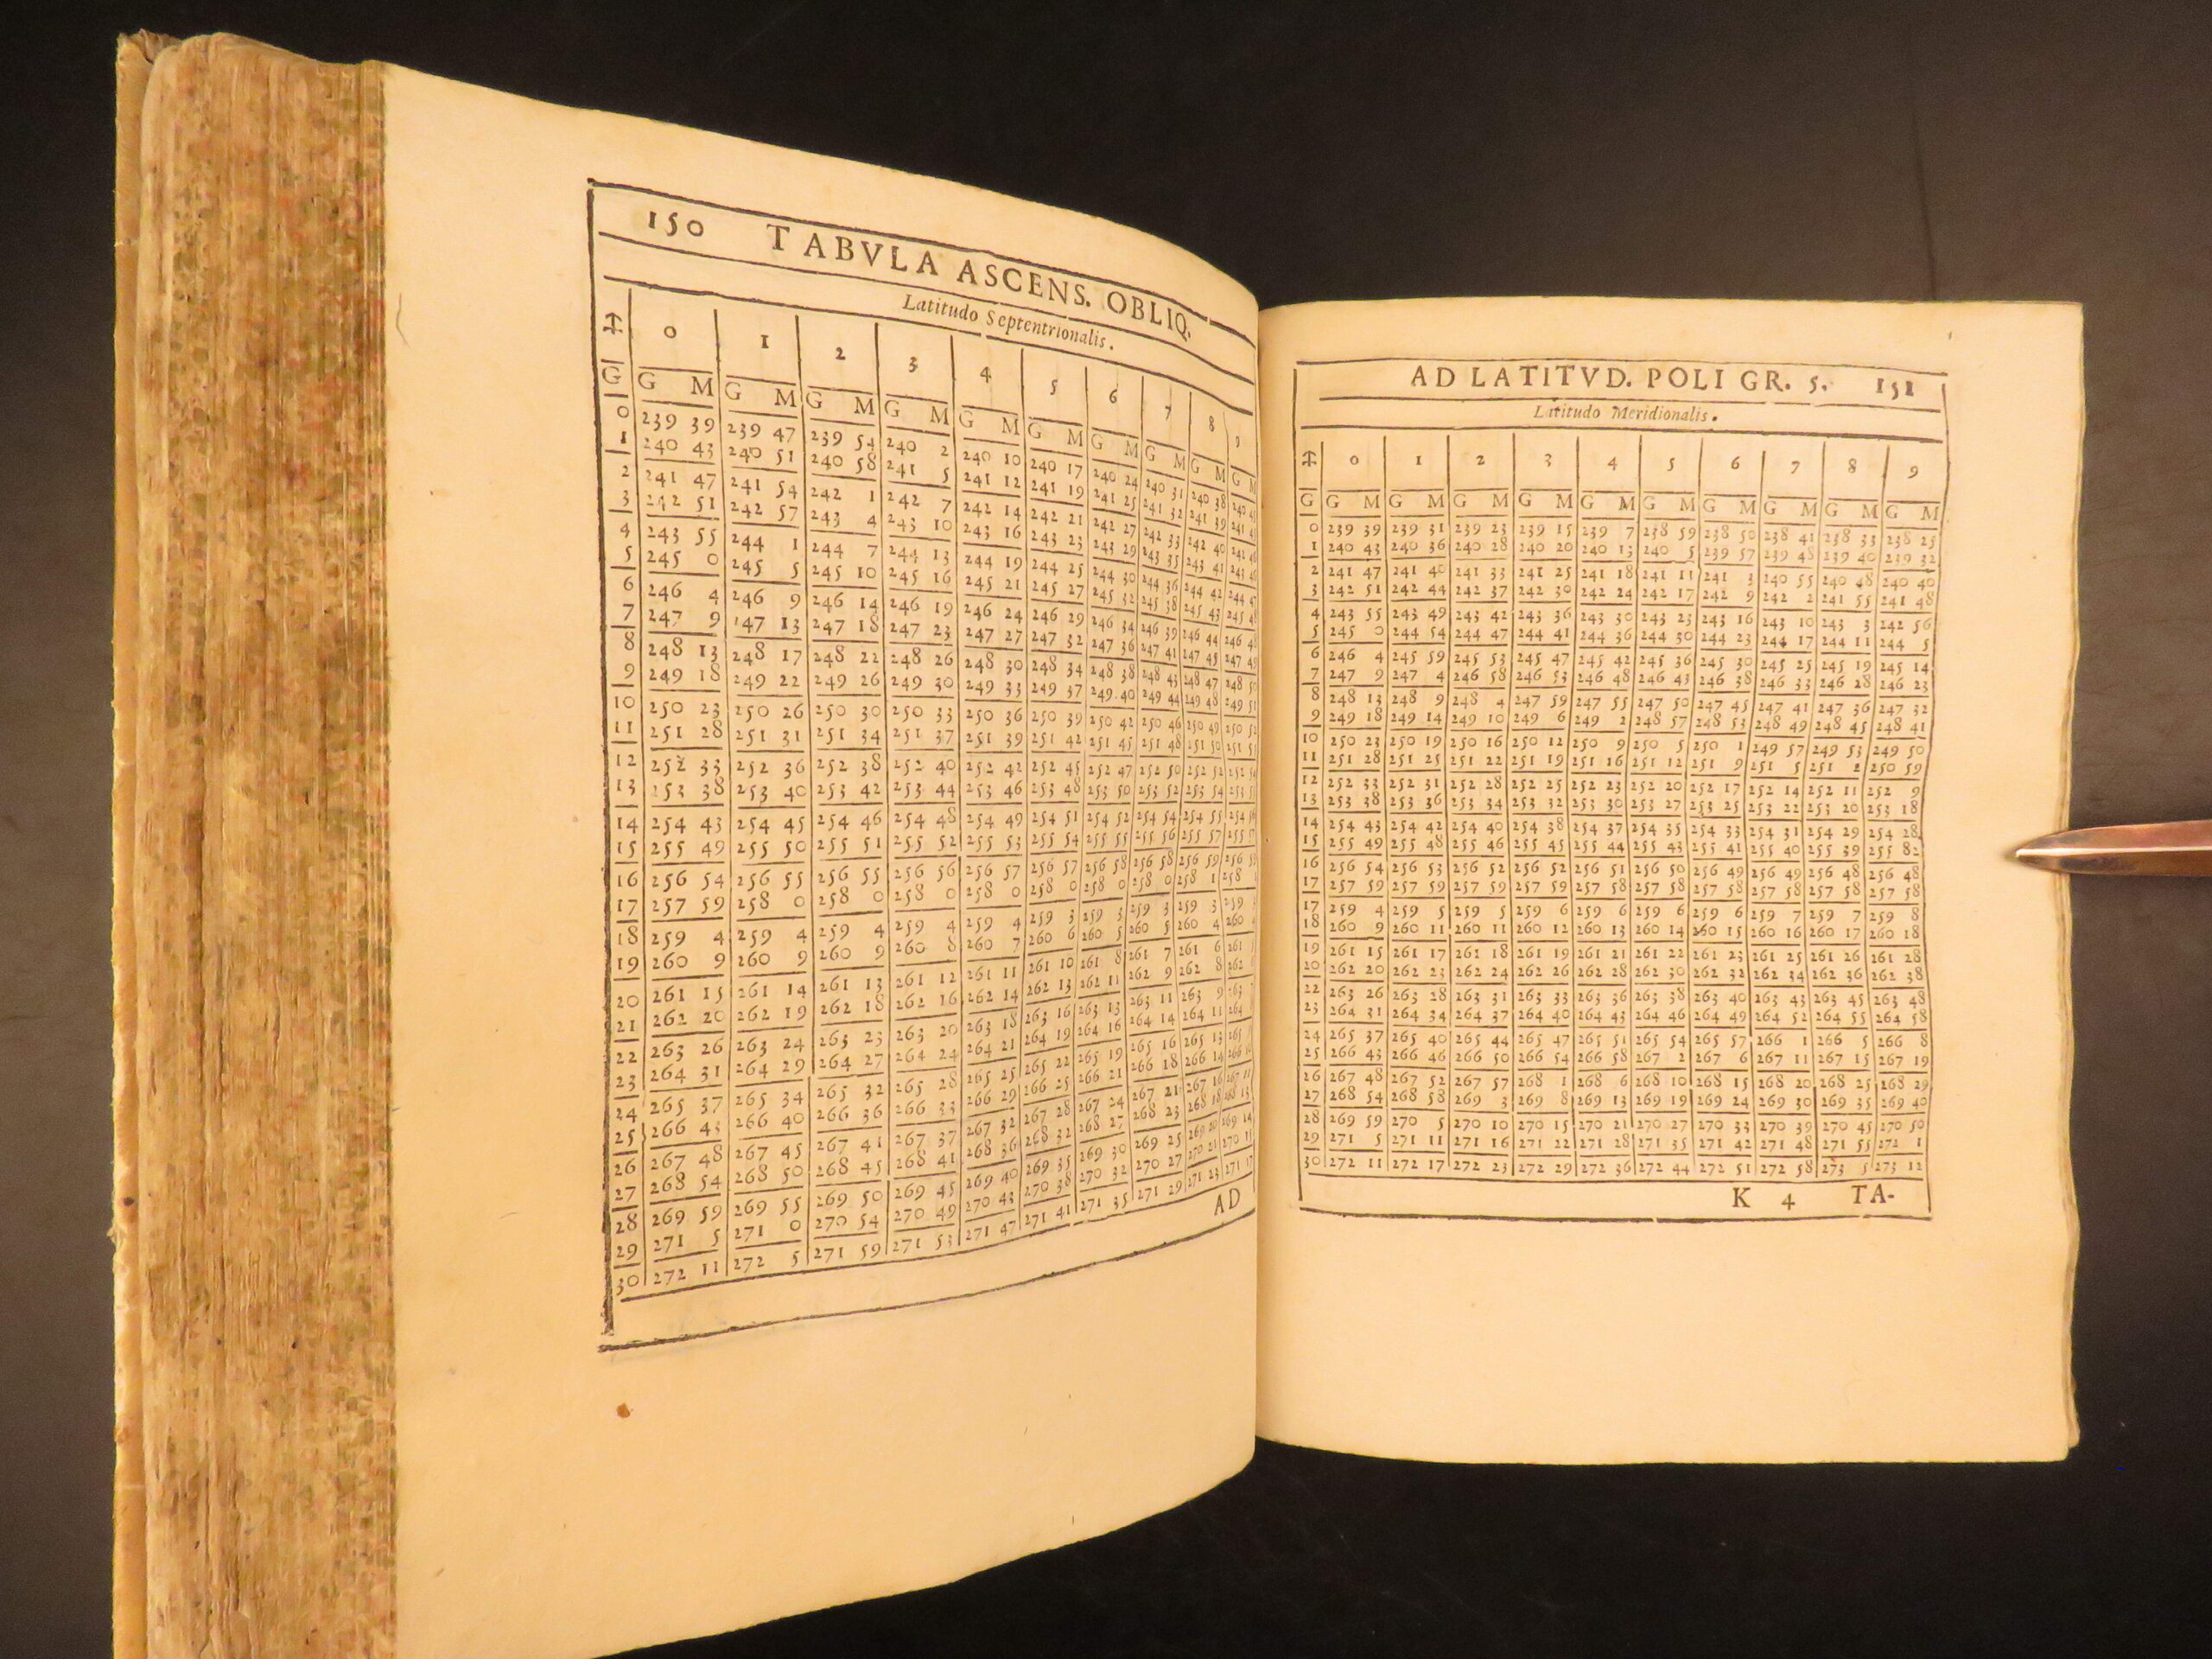 150 TABVLA ASCENS. OBLIQ.
Latitudo Septentrionalis.
♐ 0 1 2 3 4 5 6 7 8 9
G G M G M G M G M G M G M G M G M G M G M
0 239 39 239 47 239 54 240 2 240 10 240 17 240 24 240 31 240 38 240
1 240 43 240 51 240 58 241 5 241 12 241 19 241 25 241 32 241 39 241
2 241 47 241 54 242 1 242 7 242 14 242 21 242 27 242 33 242 40 242
3 242 51 242 57 243 4 243 10 243 16 243 23 243 29 243 35 243 41 243
4 243 55 244 1 244 7 244 13 244 19 244 25 244 30 244 36 244 42 244
5 245 0 245 5 245 10 245 16 245 21 245 27 245 32 245 38 245 43 245
6 246 4 246 9 246 14 246 19 246 24 246 29 246 34 246 39 246 44 246
7 247 9 247 13 247 18 247 23 247 27 247 32 247 36 247 41 247 45 247
8 248 13 248 17 248 22 248 26 248 30 248 34 248 38 248 43 248 47 248
9 249 18 249 22 249 26 249 30 249 33 249 37 249 40 249 44 249 48 249
10 250 23 250 26 250 30 250 33 250 36 250 39 250 42 250 46 250 49 250
11 251 28 251 31 251 34 251 37 251 39 251 42 251 45 251 48 251 50 251
12 252 33 252 36 252 38 252 40 252 42 252 45 252 47 252 50 252 52 252
13 253 38 253 40 253 42 253 44 253 46 253 48 253 50 253 52 253 54 253
14 254 43 254 45 254 46 254 48 254 49 254 51 254 52 254 54 254 55 254
15 255 49 255 50 255 51 255 52 255 53 255 54 255 55 255 56 255 57 255
16 256 54 256 55 256 55 256 56 256 57 256 57 256 58 256 58 256 59 256
17 257 59 258 0 258 0 258 0 258 0 258 0 258 0 258 0 258 1 258
18 259 4 259 4 259 4 259 4 259 4 259 3 259 3 259 3 259 3 259
19 260 9 260 9 260 9 260 8 260 7 260 6 260 5 260 5 260 4 260
20 261 15 261 14 261 13 261 12 261 11 261 10 261 8 261 7 261 6 261
21 262 20 262 19 262 18 262 16 262 14 262 13 262 11 262 9 262 8 262
22 263 26 263 24 263 23 263 20 263 18 263 16 263 13 263 11 263 9 263
23 264 31 264 29 264 27 264 24 264 21 264 19 264 16 264 14 264 11 264
24 265 37 265 34 265 32 265 28 265 25 265 22 265 19 265 16 265 13 265
25 266 43 266 40 266 36 266 33 266 29 266 25 266 21 266 18 266 14 266
26 267 48 267 45 267 41 267 37 267 32 267 28 267 24 267 21 267 16 267
27 268 54 268 50 268 45 268 41 268 36 268 32 268 27 268 23 268 18 268 13
28 269 59 269 55 269 50 269 45 269 40 269 35 269 30 269 25 269 20 269 14
29 271 5 271 0 270 54 270 49 270 43 270 38 270 32 270 27 270 21 270
30 272 11 272 5 271 59 271 53 271 47 271 41 271 35 271 29 271 23 271 17
AD
AD LATITVD. POLI GR. 5. 151
Latitudo Meridionalis.
♐ 0 1 2 3 4 5 6 7 8 9
G G M G M G M G M G M G M G M G M G M G M
0 239 39 239 31 239 23 239 15 239 7 238 59 238 50 238 41 238 33 238 25
1 240 43 240 36 240 28 240 20 240 13 240 5 239 57 239 48 239 40 239 32
2 241 47 241 40 241 33 241 25 241 18 241 11 241 3 240 55 240 48 240 40
3 242 51 242 44 242 37 242 30 242 24 242 17 242 9 242 2 241 55 241 48
4 243 55 243 49 243 42 243 36 243 30 243 23 243 16 243 10 243 3 242 56
5 245 0 244 54 244 47 244 41 244 36 244 30 244 23 244 17 244 11 244 5
6 246 4 245 59 245 53 245 47 245 42 245 36 245 30 245 25 245 19 245 14
7 247 9 247 4 246 58 246 53 246 48 246 43 246 38 246 33 246 28 246 23
8 248 13 248 9 248 4 247 59 247 55 247 50 247 45 247 41 247 36 247 32
9 249 18 249 14 249 10 249 6 249 2 248 57 248 53 248 49 248 45 248 41
10 250 23 250 19 250 16 250 12 250 9 250 5 250 1 249 57 249 53 249 50
11 251 28 251 25 251 22 251 19 251 16 251 12 251 9 251 5 251 2 250 59
12 252 33 252 31 252 28 252 25 252 23 252 20 252 17 252 14 252 11 252 9
13 253 38 253 36 253 34 253 32 253 30 253 27 253 25 253 22 253 20 253 18
14 254 43 254 42 254 40 254 38 254 37 254 35 254 33 254 31 254 29 254 28
15 255 49 255 48 255 46 255 45 255 44 255 43 255 41 255 40 255 39 255
16 256 54 256 53 256 52 256 52 256 51 256 50 256 49 256 49 256 48 256 48
17 257 59 257 59 257 59 257 59 257 58 257 58 257 58 257 58 257 58 257 58
17 259 4 259 5 259 5 259 6 259 6 259 6 259 6 259 7 259 7 259 8
18 260 9 260 11 260 11 260 12 260 13 260 14 260 15 260 16 260 17 260 18
19 261 15 261 17 261 18 261 19 261 21 261 22 261 23 261 25 261 26 261 28
20 262 20 262 23 262 24 262 26 262 28 262 30 262 32 262 34 262 36 262 38
22 263 26 263 28 263 31 263 33 263 36 263 38 263 40 263 43 263 45 263 48
23 264 31 264 34 264 37 264 40 264 43 264 46 264 49 264 52 264 55 264 58
24 265 37 265 40 265 44 265 47 265 51 265 54 265 57 266 1 266 5 266 8
25 266 43 266 46 266 50 266 54 266 58 267 2 267 6 267 11 267 15 267 19
26 267 48 267 52 267 57 268 1 268 6 268 10 268 15 268 20 268 25 268 29
27 268 54 268 58 269 3 269 8 269 13 269 19 269 24 269 30 269 35 269 40
28 269 59 270 5 270 10 270 15 270 21 270 27 270 33 270 39 270 45 270 50
29 271 5 271 11 271 16 271 22 271 28 271 35 271 42 271 48 271 55 272 1
30 272 11 272 17 272 23 272 29 272 36 272 44 272 51 272 58 273 5 273 12
K 4 TA-